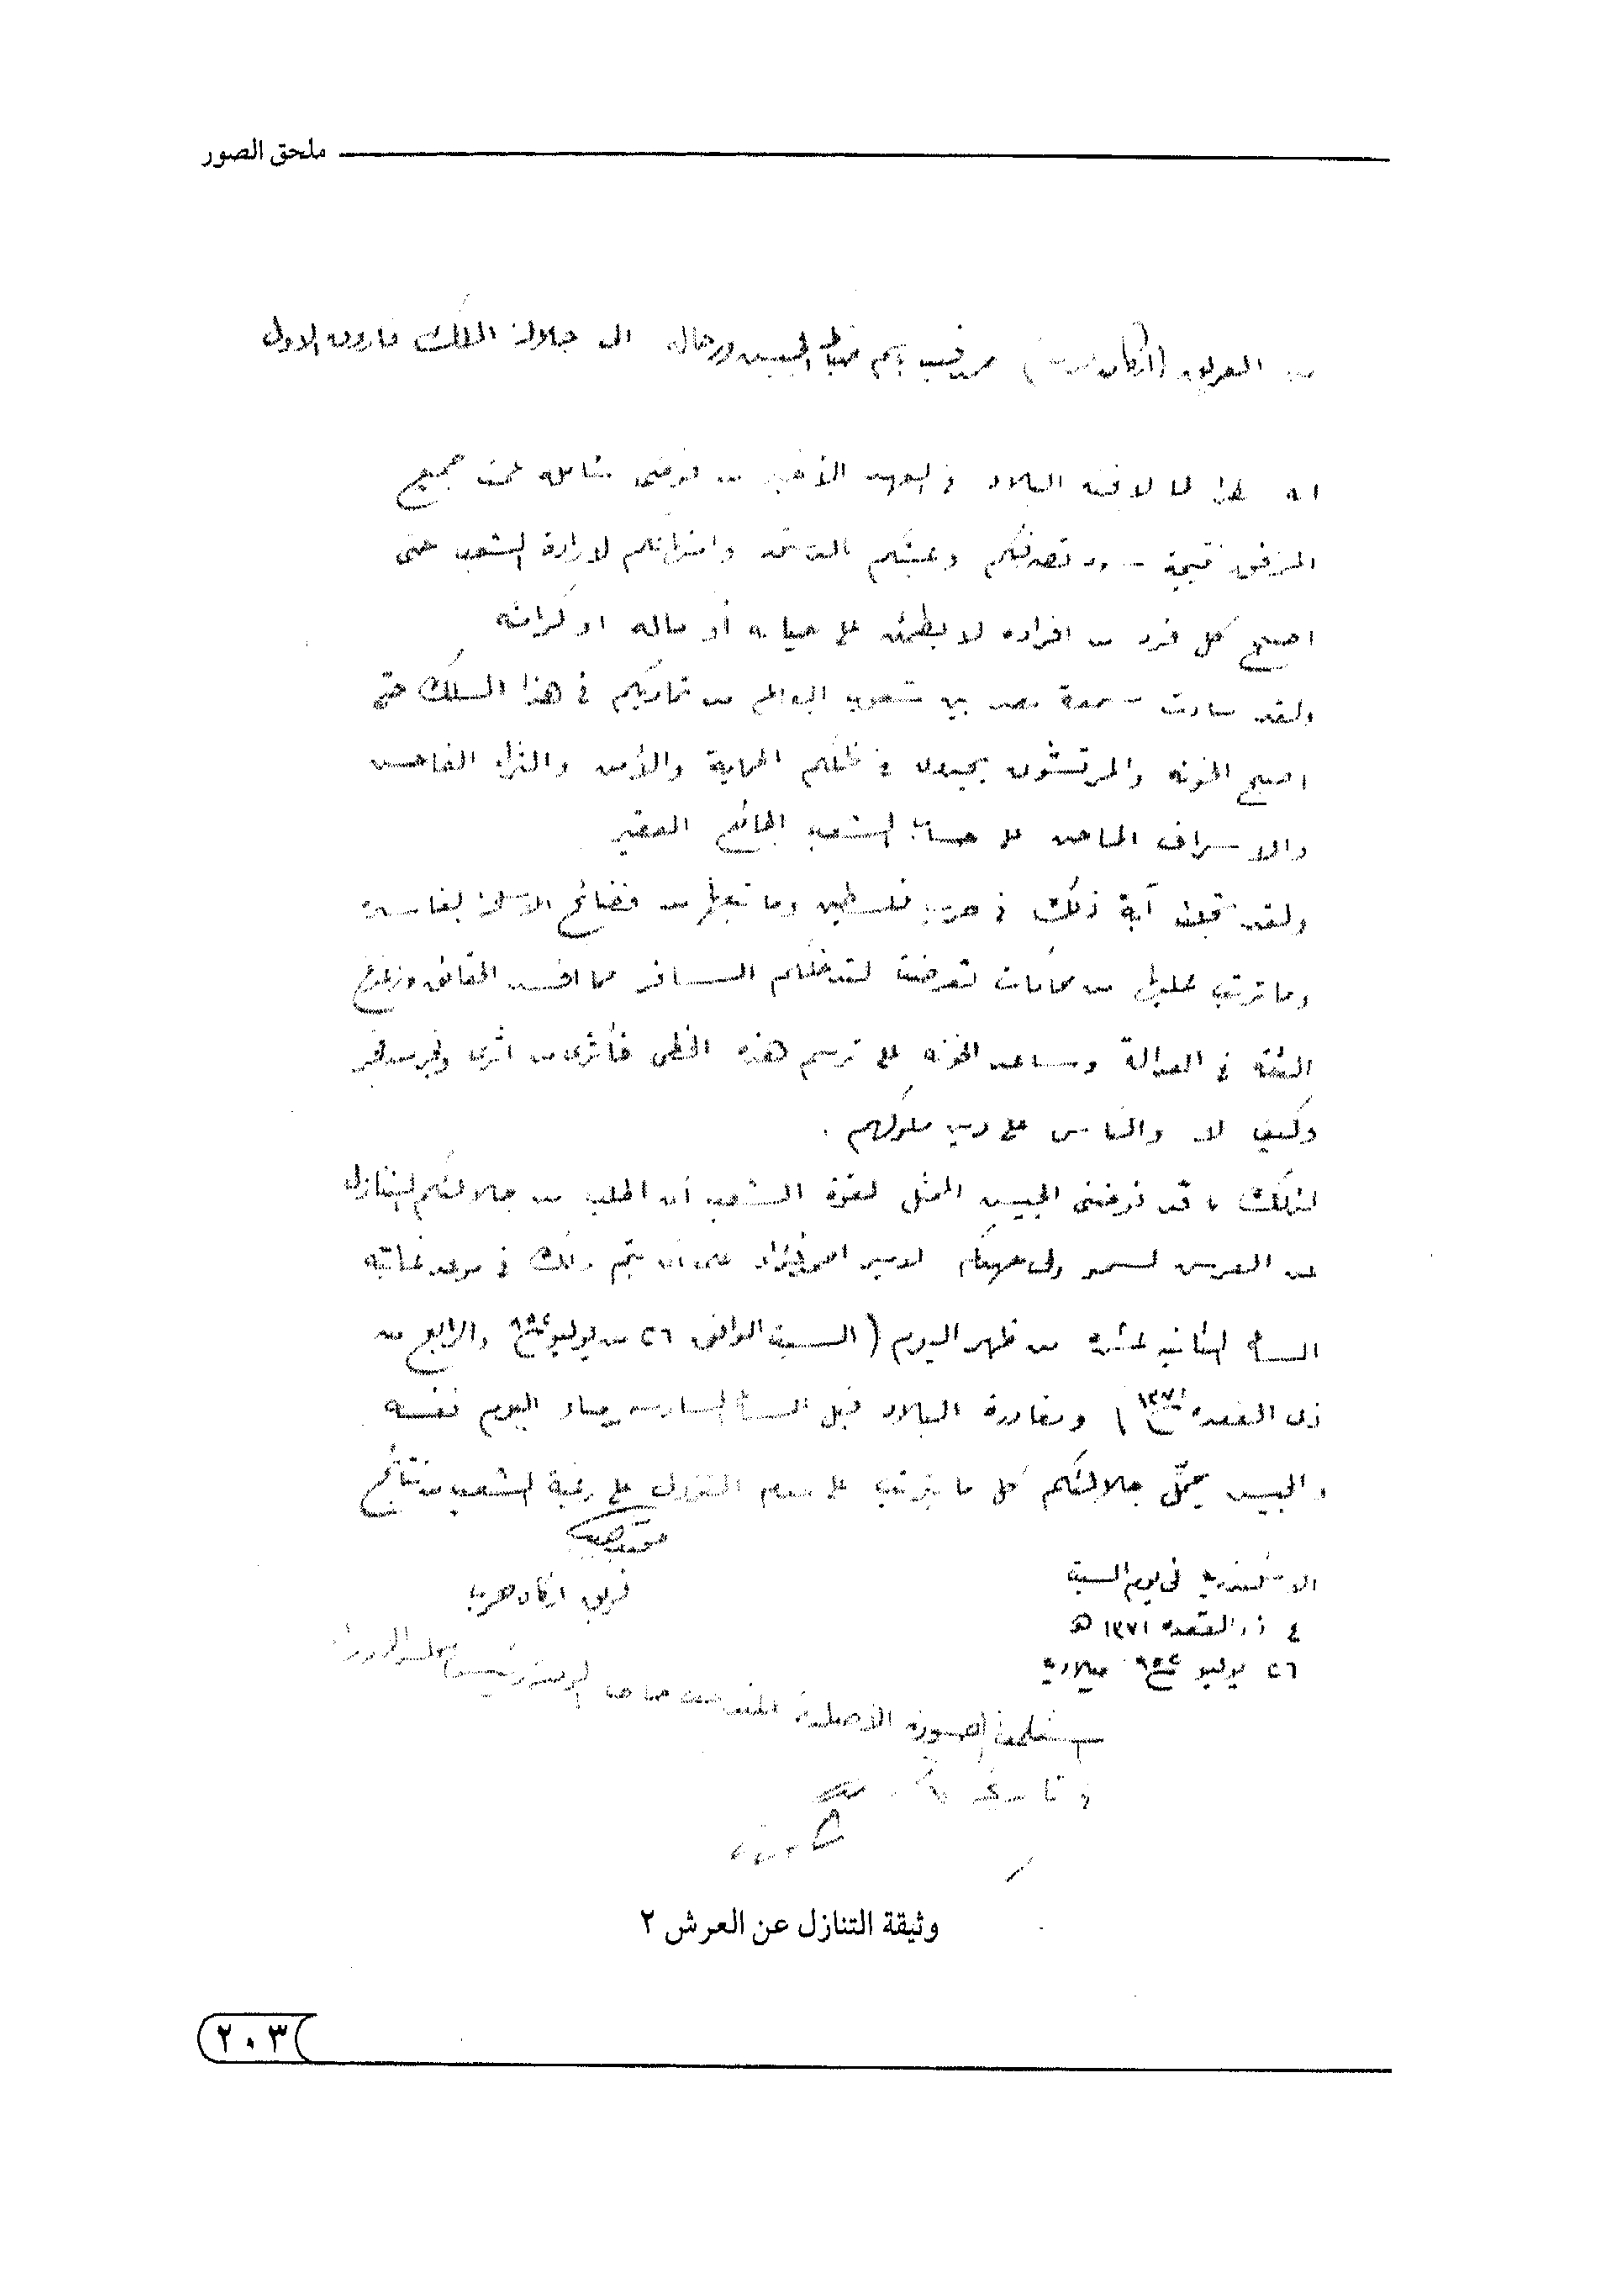 ملحق الصور
من الفريق (اركان حرب) محمد نجيب باسم ضباط الجيش ورجاله الى جلالة الملك فاروق الاول
انه نظرا لما لاقته البلاد فى العهد الأخير من فوضى شاملة عمت جميع
المرافق نتيجة سوء تصرفكم وعبثكم بالدستور وامتهانكم لارادة الشعب حتى
اصبح كل فرد من افراده لا يطمئن على حياته أو ماله او كرامته
ولقد ساءت سمعة مصر بين شعوب العالم من تماديكم فى هذا المسلك حتى
اصبح الخونه والمرتشون يجدون فى ظلكم الحماية والأمن والثراء الفاحش
والاسراف الماجن على حساب الشعب الجائع الفقير
ولقد تجلت آية ذلك فى حرب فلسطين وما تبعها من فضائح الاسلحة الفاسدة
وما ترتب عليها من محاكمات تعرضت لتدخلكم السافر مما افسد الحقائق وزعزع
الثقة فى العدالة وساعد الخونه على ترسم هذه الخطى فأثرى من اثرى وفجر من فجر
وكيف لا والناس على دين ملوكهم .
لذلك قد فوضنى الجيش الممثل لقوة الشعب أن اطلب من جلالتكم التنازل
عن العرش لسمو ولى عهدكم الامير احمد فؤاد على ان يتم ذلك فى موعد غايته
الساعة الثانية عشرة من ظهر اليوم (السبت الموافق ٢٦ من يوليو ١٩٥٢ والرابع من
ذى القعده ١٣٧١) ومغادرة البلاد قبل الساعة السادسة من مساء اليوم نفسه
والجيش يحمل جلالتكم كل ما يترتب على عدم النزول على رغبة الشعب من نتائج
محمد نجيب
فريق اركان حرب
الاسكندرية فى يوم السبت
٤ ذو القعده ١٣٧١ هـ
٢٦ يوليو ١٩٥٢ ميلادية
استلمت الصورة الأصلية رئيس مجلس الوزراء
وثيقة التنازل عن العرش ٢
٢٠٣